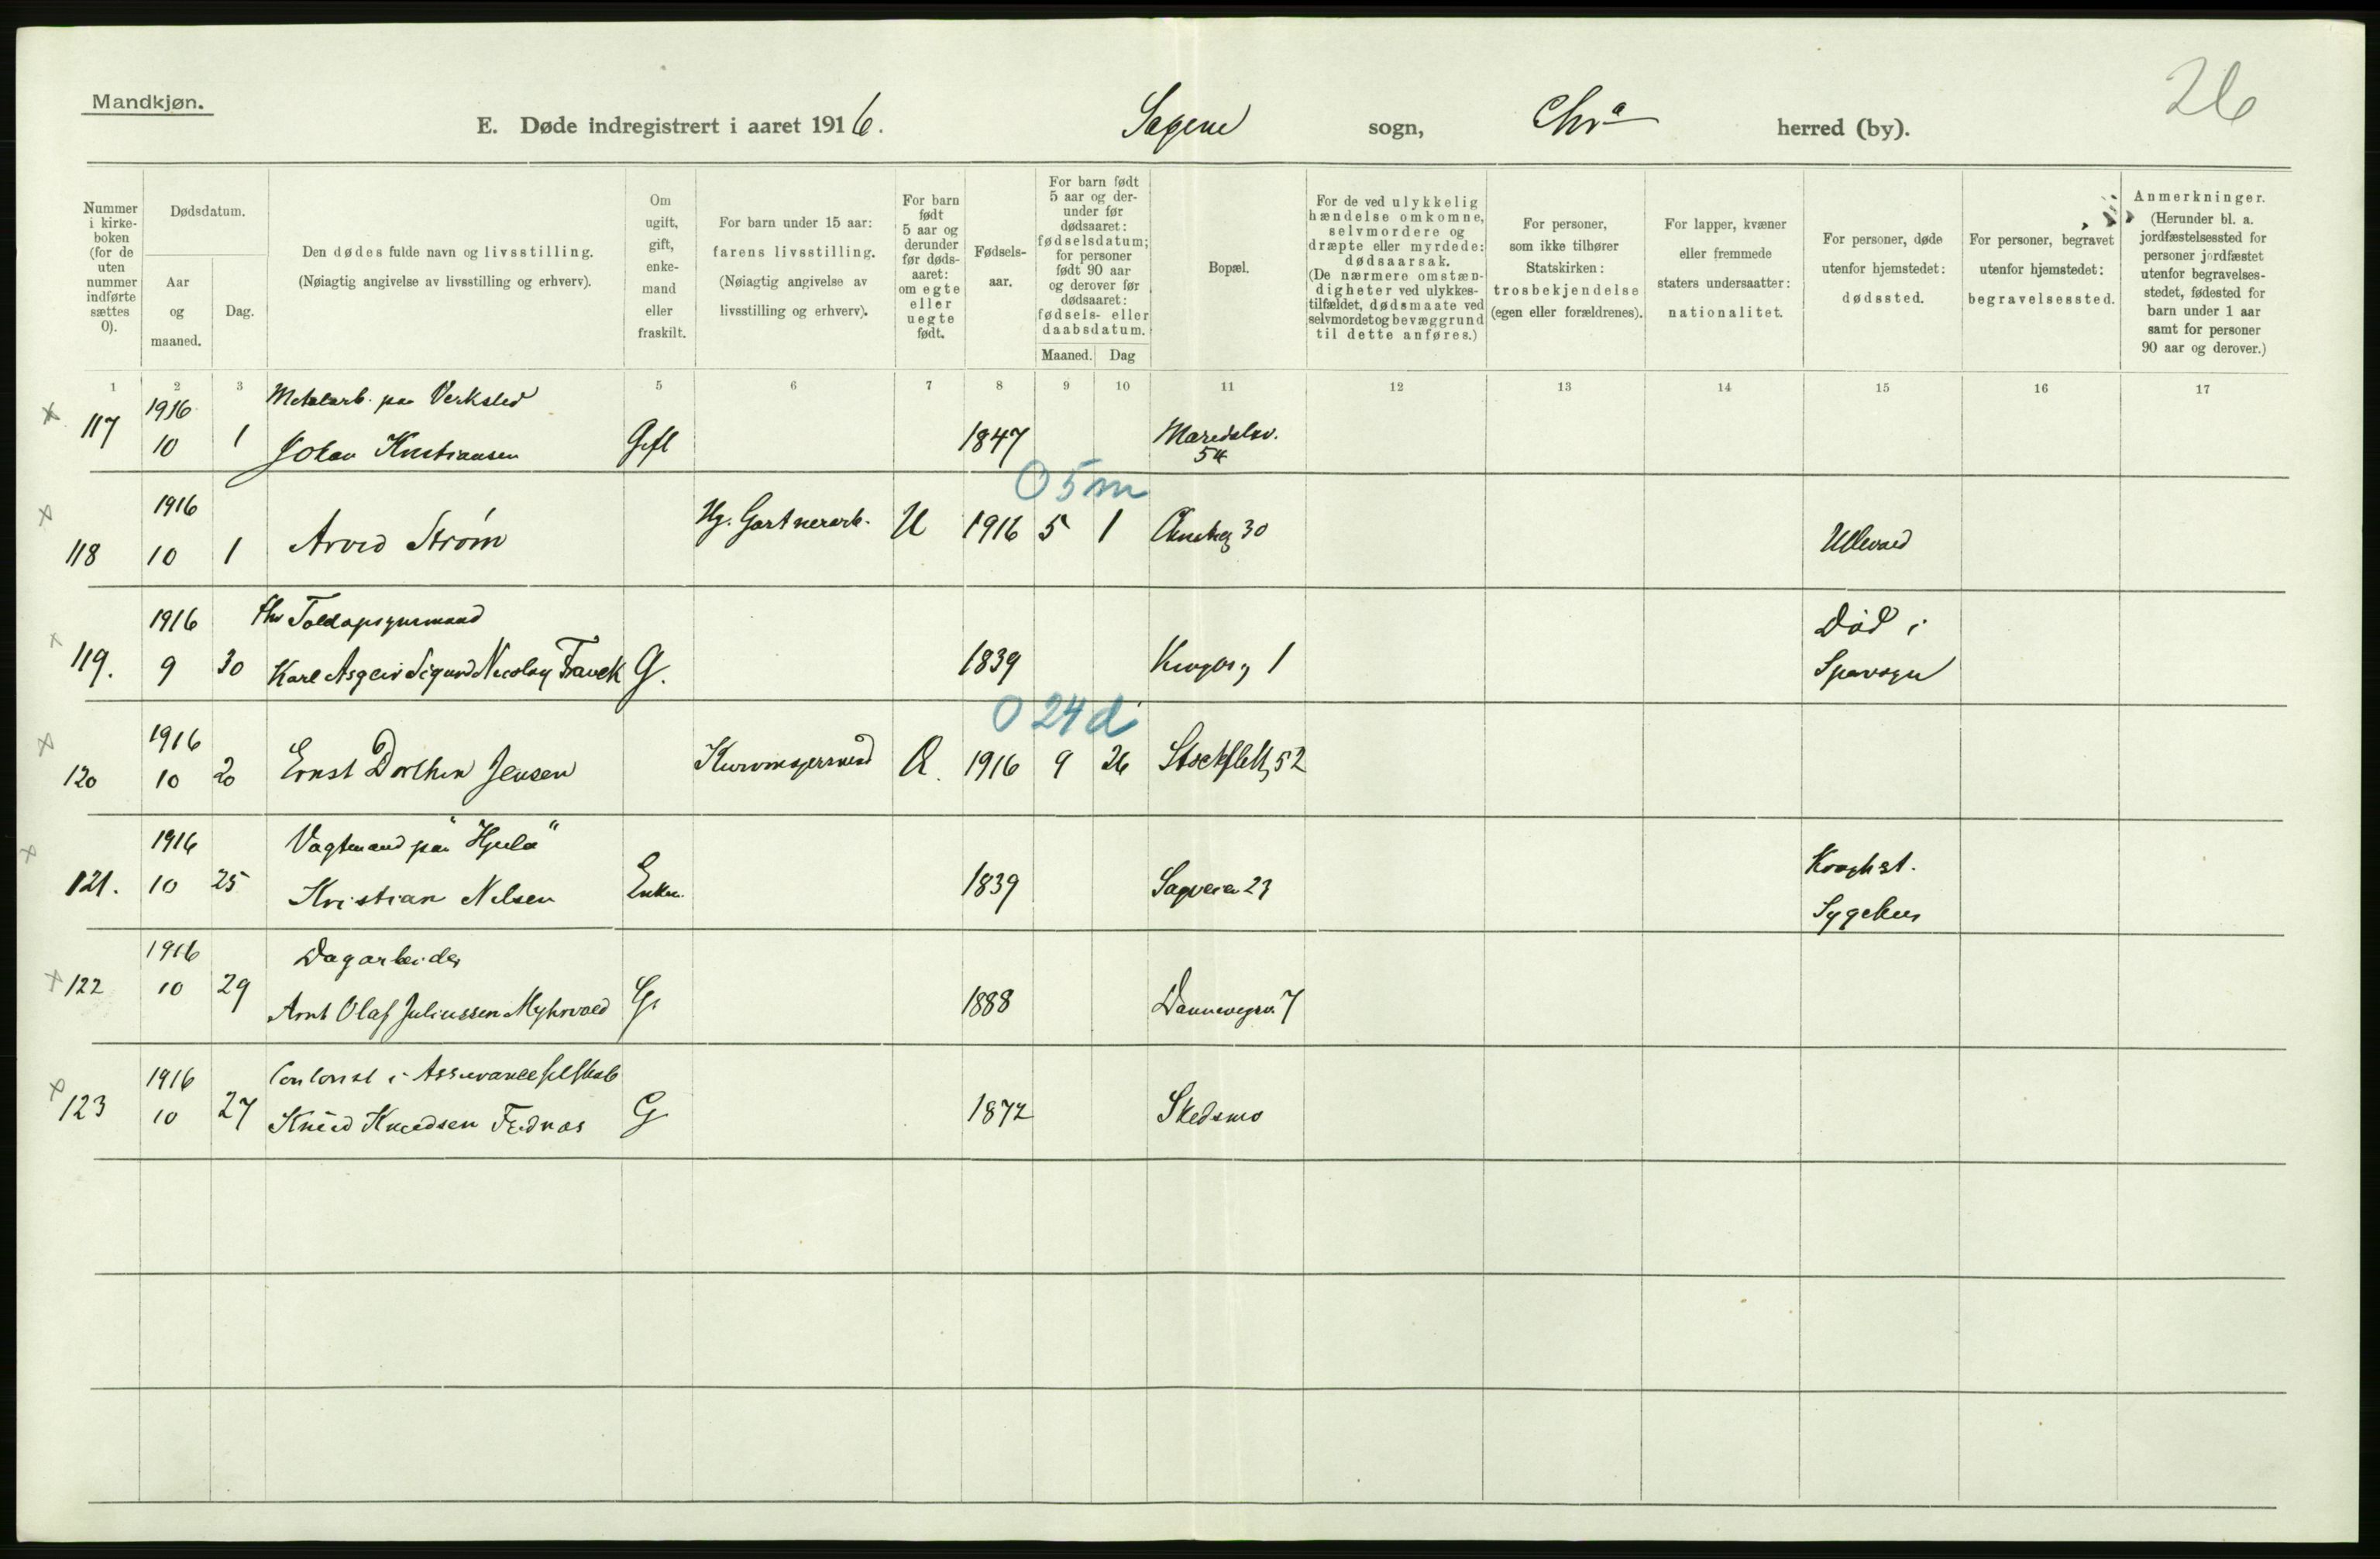 Mandkjøn.
26
E. Døde indregistrert i aaret 1916. Sagene sogn, Chra herred (by).
Nummer i kirkeboken (for de uten nummer indførte sættes 0).
Dødsdatum.
Aar og maaned.
Dag.
Den dødes fulde navn og livsstilling.
(Nøiagtig angivelse av livsstilling og erhverv).
Om ugift, gift, enkemand eller fraskilt.
For barn under 15 aar: farens livsstilling.
(Nøiagtig angivelse av livsstilling og erhverv).
For barn født 5 aar og derunder før dødsaaret: om egte eller uegte født.
Fødselsaar.
For barn født 5 aar og derunder før dødsaaret: fødselsdatum; for personer født 90 aar og derover før dødsaaret: fødsels- eller daabsdatum.
Maaned. Dag
Bopæl.
For de ved ulykkelig hændelse omkomne, selvmordere og dræpte eller myrdede: dødsaarsak.
(De nærmere omstændigheter ved ulykkestilfældet, dødsmaate ved selvmordet og bevæggrund til dette anføres.)
For personer, som ikke tilhører Statskirken: trosbekjendelse (egen eller forældrenes).
For lapper, kvæner eller fremmede staters undersaatter: nationalitet.
For personer, døde utenfor hjemstedet: dødssted.
For personer, begravet utenfor hjemstedet: begravelsessted.
Anmerkninger.
(Herunder bl. a. jordfæstelsessted for personer jordfæstet utenfor begravelsesstedet, fødested for barn under 1 aar samt for personer 90 aar og derover.)
1 2 3 5 6 7 8 9 10 11 12 13 14 15 16 17
1916 Metalarb. paa Verksted
x 117 10 1 Johan Kristiansen Gift 1847 Maridalsv. 54
0 5 m
x 1916
118 10 1 Arvid Strøm Ug. Gartnerarb. U 1916 5 1 30 Ullevaal
1916 fhv Toldopsynsmand Død i
x 119. 9 30 Karl Asgeir Sigurd Nicolay G. 1839 1
0 24 d
x 1916
120 10 20 Ernst Jensen 1916 9 26 52
x 1916 Vagtmand paa "Hjula" Kroghst.
121. 10 25 Kristian Nilsen Enkm. 1839 Sagveien 23 Sygehus
1916 Dagarbeider
x 122 10 29 Arnt Olaf Juliussen Myhrvold G. 1888 Dannevigsv. 7
1916 Contorist i Assuranceselskab
x 123 10 27 Knud Knudsen G 1872 Skedsmo